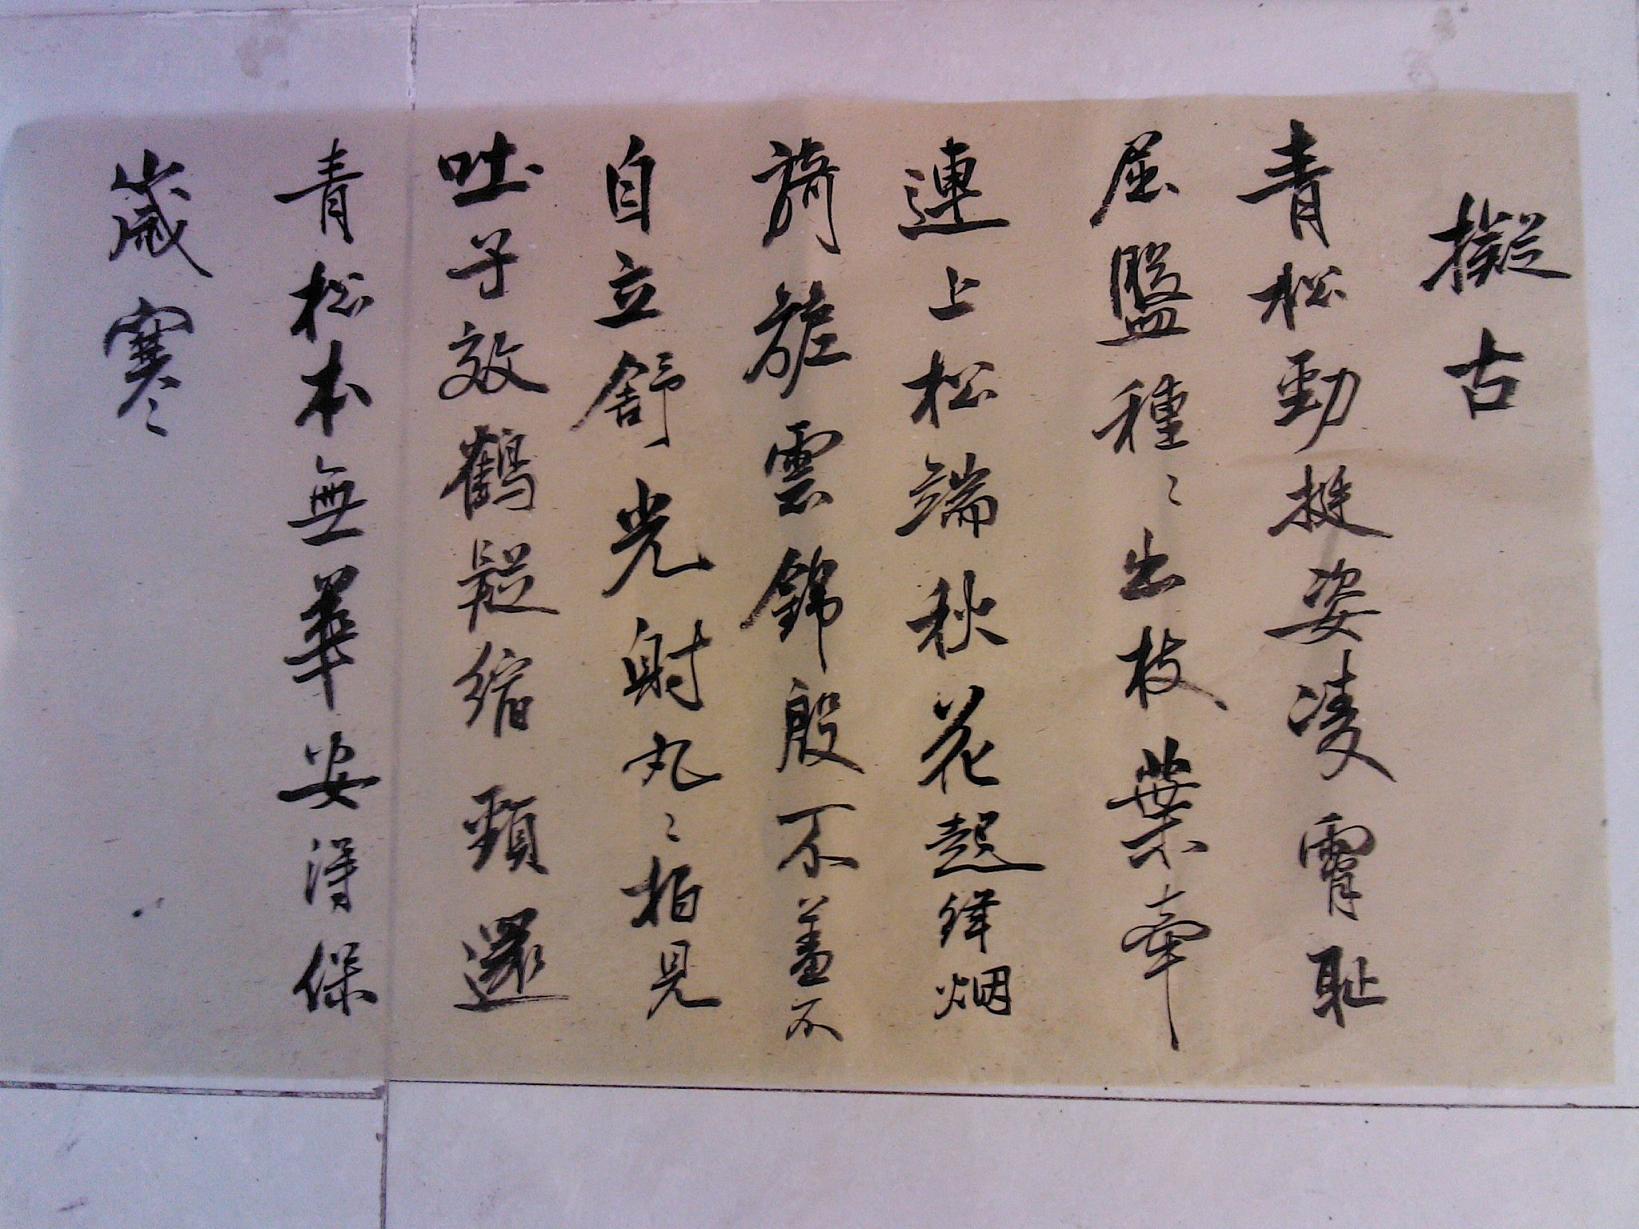 擬古
青松勁挺姿凌霄恥
屈盤種〻出枝葉牽
連上松端秋花起絳烟
旖旎雲錦殷不羞不
自立舒光射丸〻柏見
吐子效鶴疑縮頸還
青松本無華安得保
歲寒〻